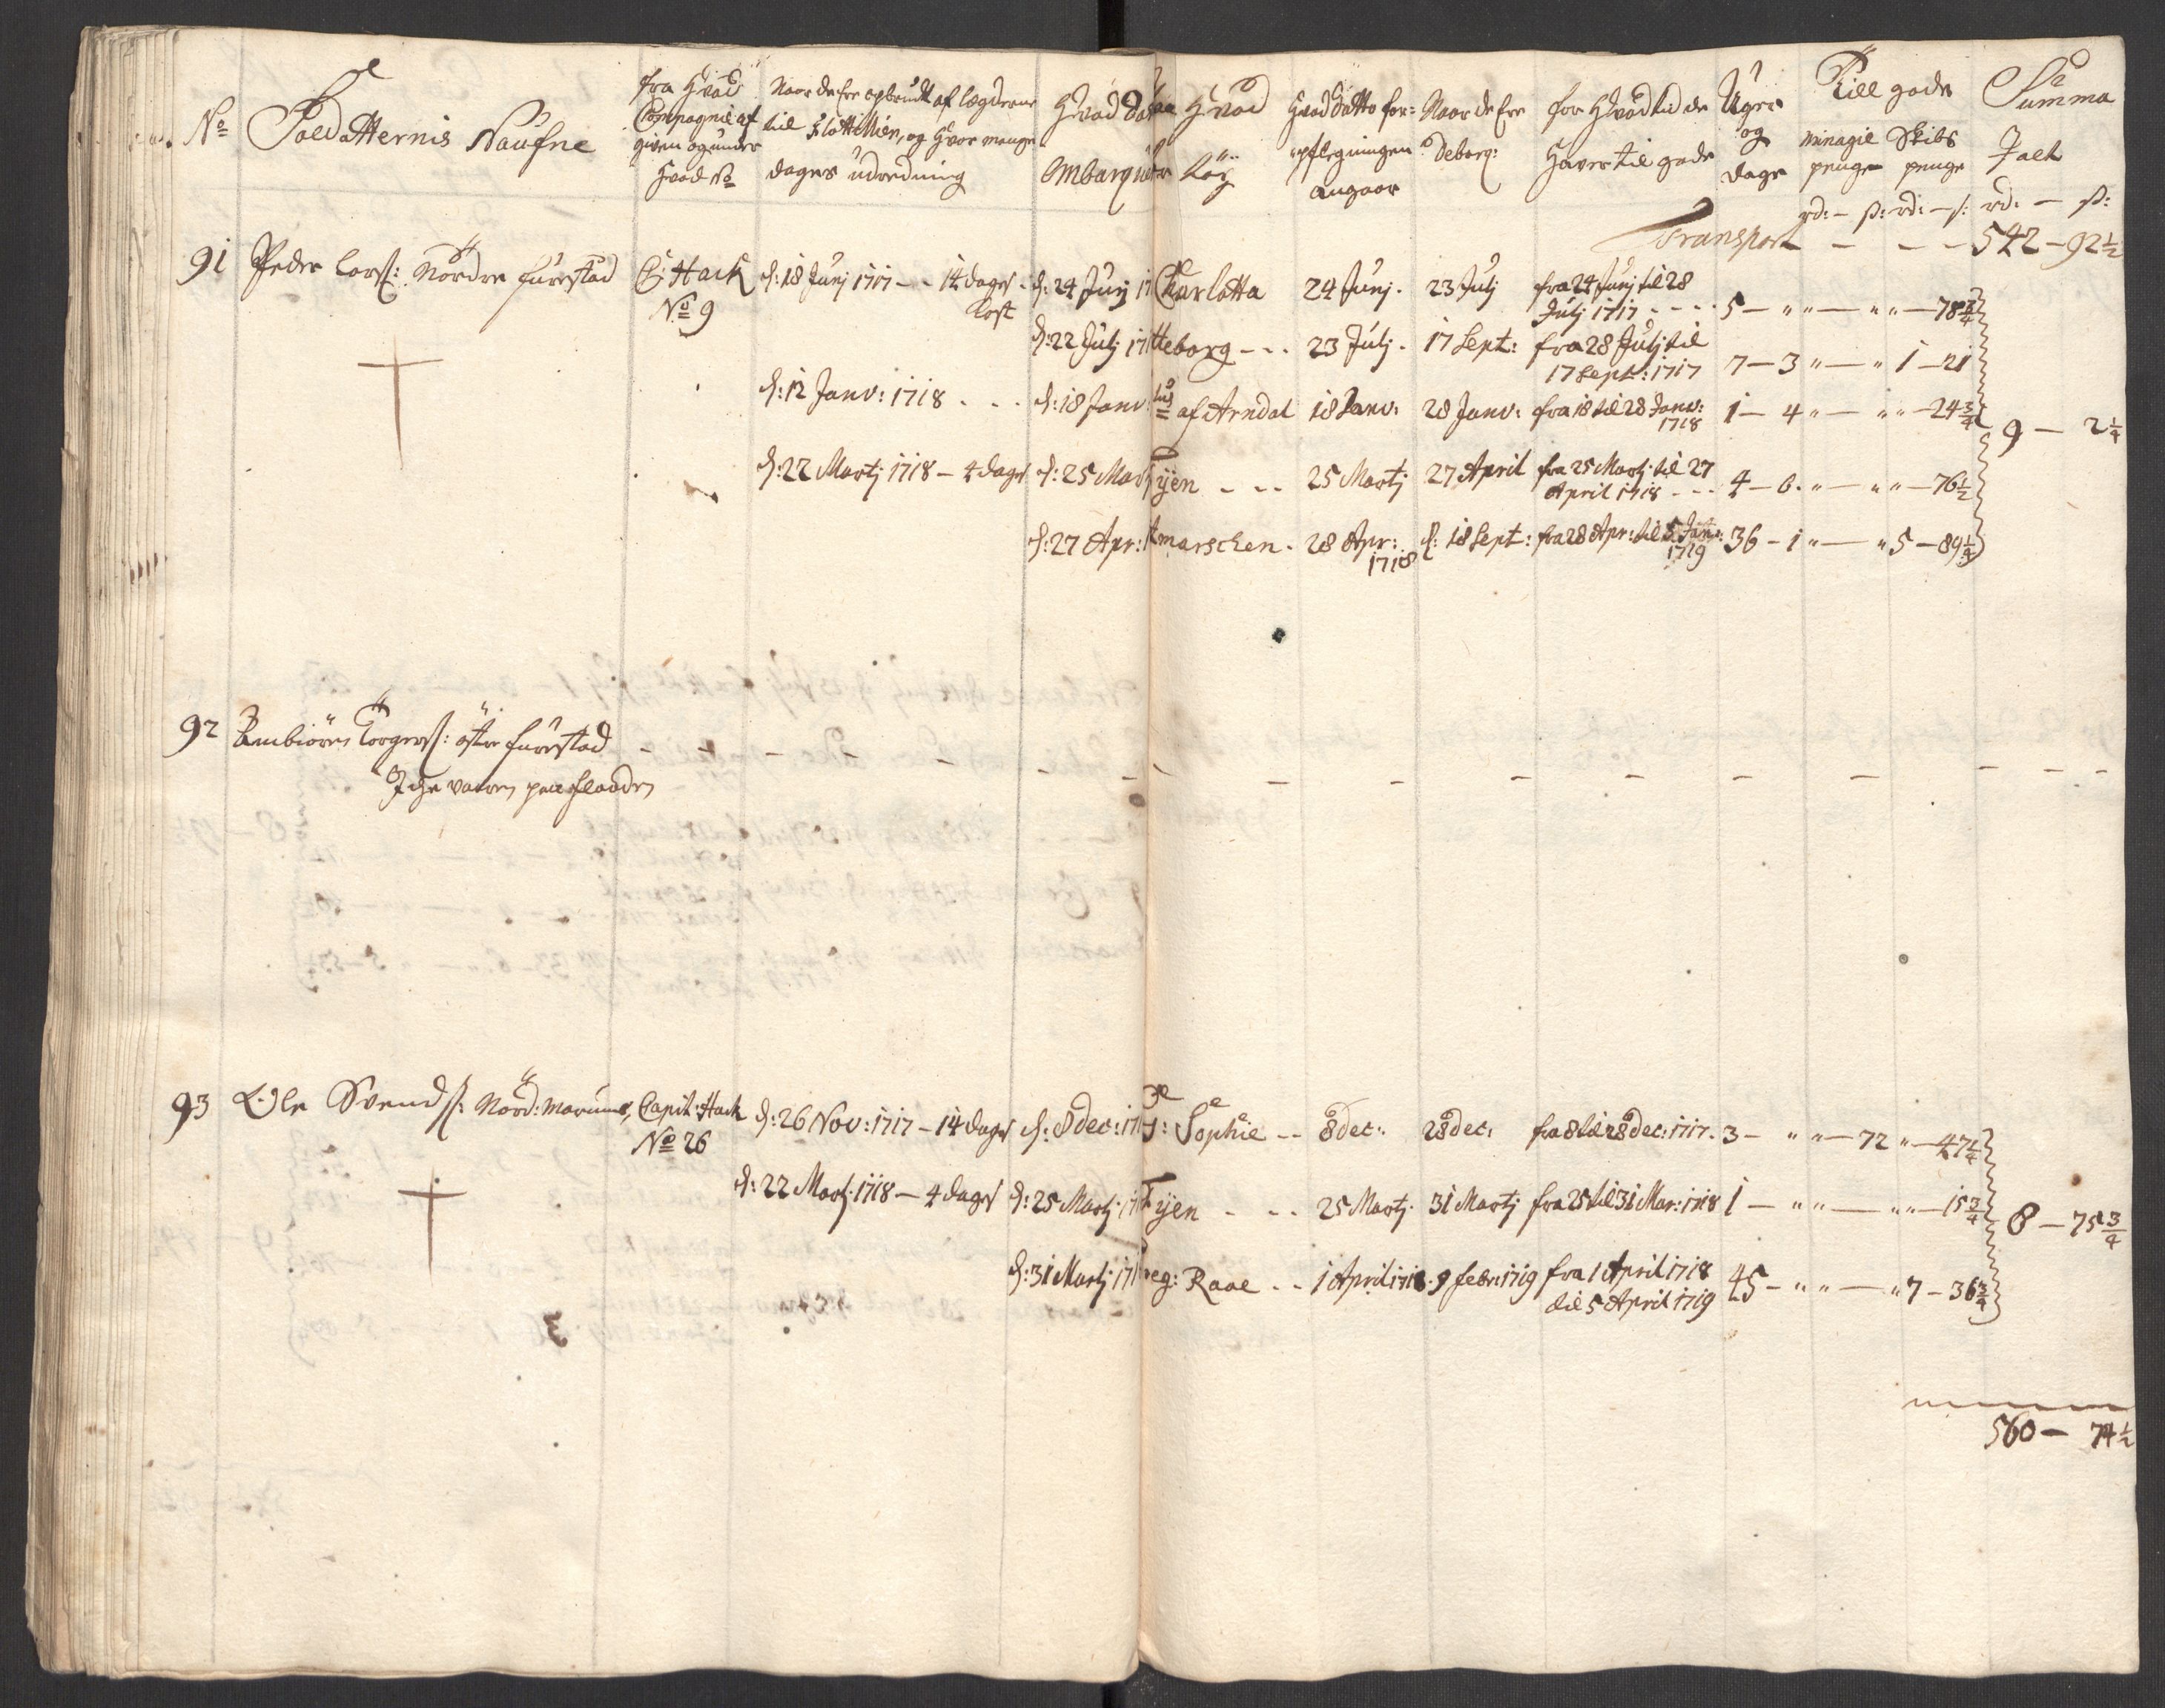 No
Soldatternis Naufne
fra Hvad Compagnie af given og under Hvad No
Naar de Ere opbrudt af lægderne til Flottillien, og Hvor mange dages udredning
Hvad Datum Embarqueret
Hvad Køy
Hvad Datto for: pflegningen angaar
Naar de Ere Deborq:
for Hvad tid de Haver til gode
Uger og dage
Till gode
minagie penge
Skibs penge
Summa Talt
rd: – s: rd: – s: rd: – s:
Transport – – – 542 – 92 1/2
91 Peder Lars: Nordre furestad
C: Hack No 9
d: 18 Junj 1717 – – 14 dages Kost
d: 24 Junj 17
Charlotta
24 Junj.
23 Julj
fra 24 Junj til 28 Julj 1717 - - - -
5 – " " — " " — 78 3/4
d: 22 Julj 17
tteborg - - -
23 Julj.
17 Sept:
fra 28 Julj til 17 Sept: 1717
7 – 3 " — " 1 – 21
d: 12 Janv: 1718 - - -
d: 18 Janv:
af Arndal
18 Janv:
28 Janv:
fra 18 til 28 Janv: 1718
1 – 4 " — " " – 24 3/4
9 — 2 1/4
d: 22 Martj 1718 – 4 dages
d: 25 Mar
Fyen - - -
25 Martj
27 April
fra 25 Martj til 27 April 1718 - - -
4 – 6. " — " " — 76 1/2
d: 27 Apr:
tmarschen.
28 Apr: 1718
d: 18 Sept:
fra 28 Apr: til 5 Jan: 1719
36 – 1 " — " 5 – 89 1/4
92 Torgers: østre furestad – – – – – – –
Iche været paa flaaden
93 Ole Svends: Nord: Marum
Capit: Hack No 26
d: 26 Nov: 1717 – 14 dages
d: 8 dec: 17
g: Sophie - -
8 dec:.
28 dec:
fra 8 til 28 dec: 1717.
3 – " " — 72 " — 47 1/4
d: 22 Martj. 1718 – 4 dages
d: 25 Martj. 17
Fyen - - -
25 Martj.
31 Martj
fra 25 til 31 Mar: 1718
1 – " " — " " — 15 3/4
8 – 75 3/4
d: 31 Martj 17
eg: Raae - -
1 April 1718.
9 febr: 1719
fra 1 April 1718 til 5 April 1719
45 – " " — " 7 – 36 3/4
560 – 74 1/2